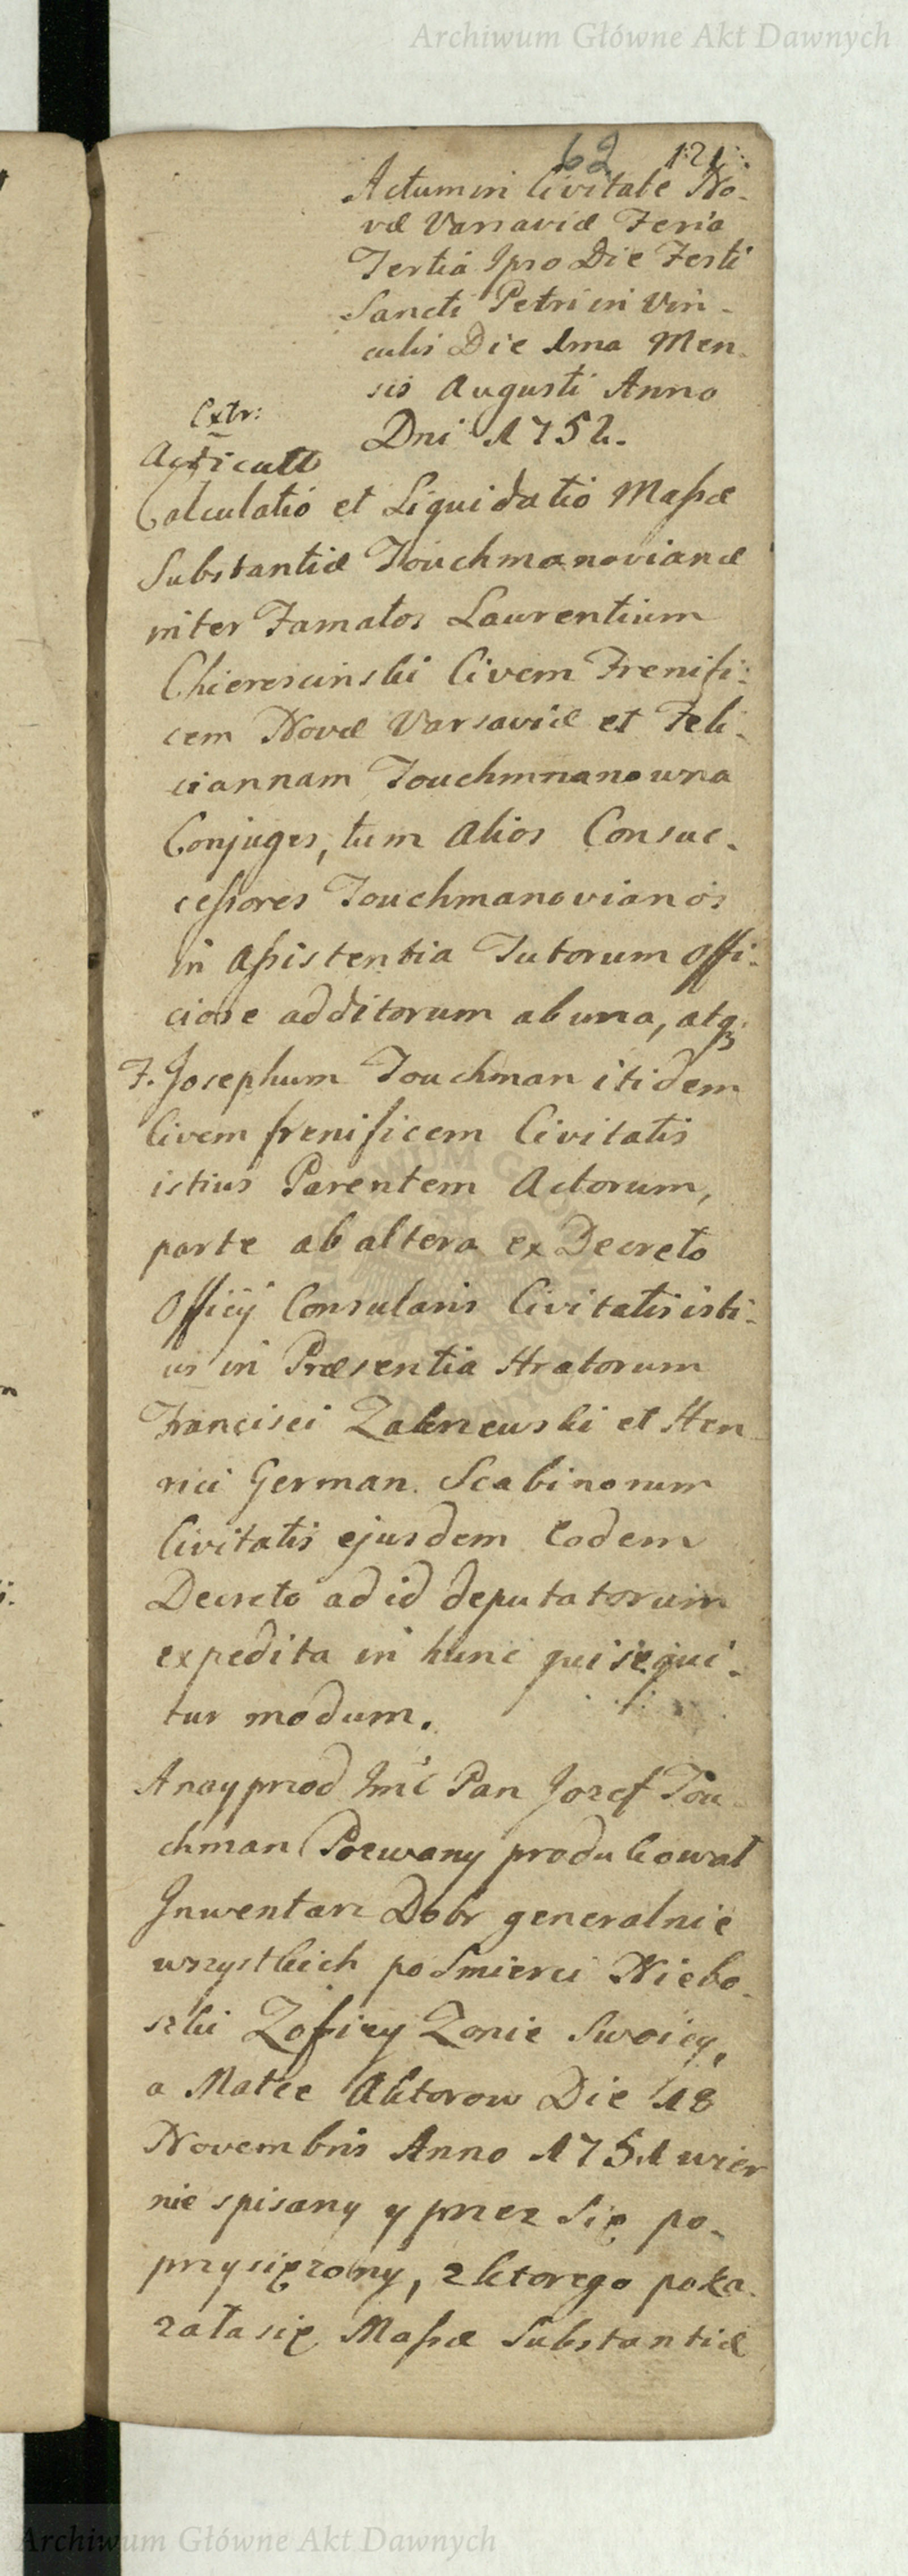 Archiwum Główne Akt Dawnych
62 121
Actum in Civitate No-
væ Varsaviæ Feria
Tertia Ipso Die Festi
Sancti Petri in Vin-
culis Die 1ma Men-
sis Augusti Anno
Extr: Dni 1752.
Calculatio et Liquidatio Massæ
Substantiæ Touchmanovianæ
inter Famatos Laurentium
Chierescinski Civem Frenifi-
cem Novæ Varsaviæ et Feli-
ciannam Touchmnanowna
Conjuges, tum alios Consuc-
cessores Touchmanovianos
in assistentia Tutorum offi-
ciose additorum ab una, atq;
F. Josephum Touchman itidem
Civem frenificem Civitatis
istius Parentem Actorum,
parte ab altera ex Decreto
Officij Consularis Civitatis isti-
us in Præsentia Stratorum
Francisci Zalewski et Hen
rici German. Scabinorum
Civitatis ejusdem Eodem
Decreto ad id deputatorum
expedita in hunc qui sequi-
tur modum.
Anayprzod Imc Pan Jozef Tou
chman Pozwany produkował
Inwentarz Dobr generalnie
wszystkich po Smierci Niebo-
szki Zofiey Zonie Swoiey,
a Matce Aktorow Die 18
Novembris Anno 1751 wier
nie spisany y przez Się po-
przysięzony, z ktorego poka-
zała się Massæ Substantiæ
Archiwum Główne Akt Dawnych